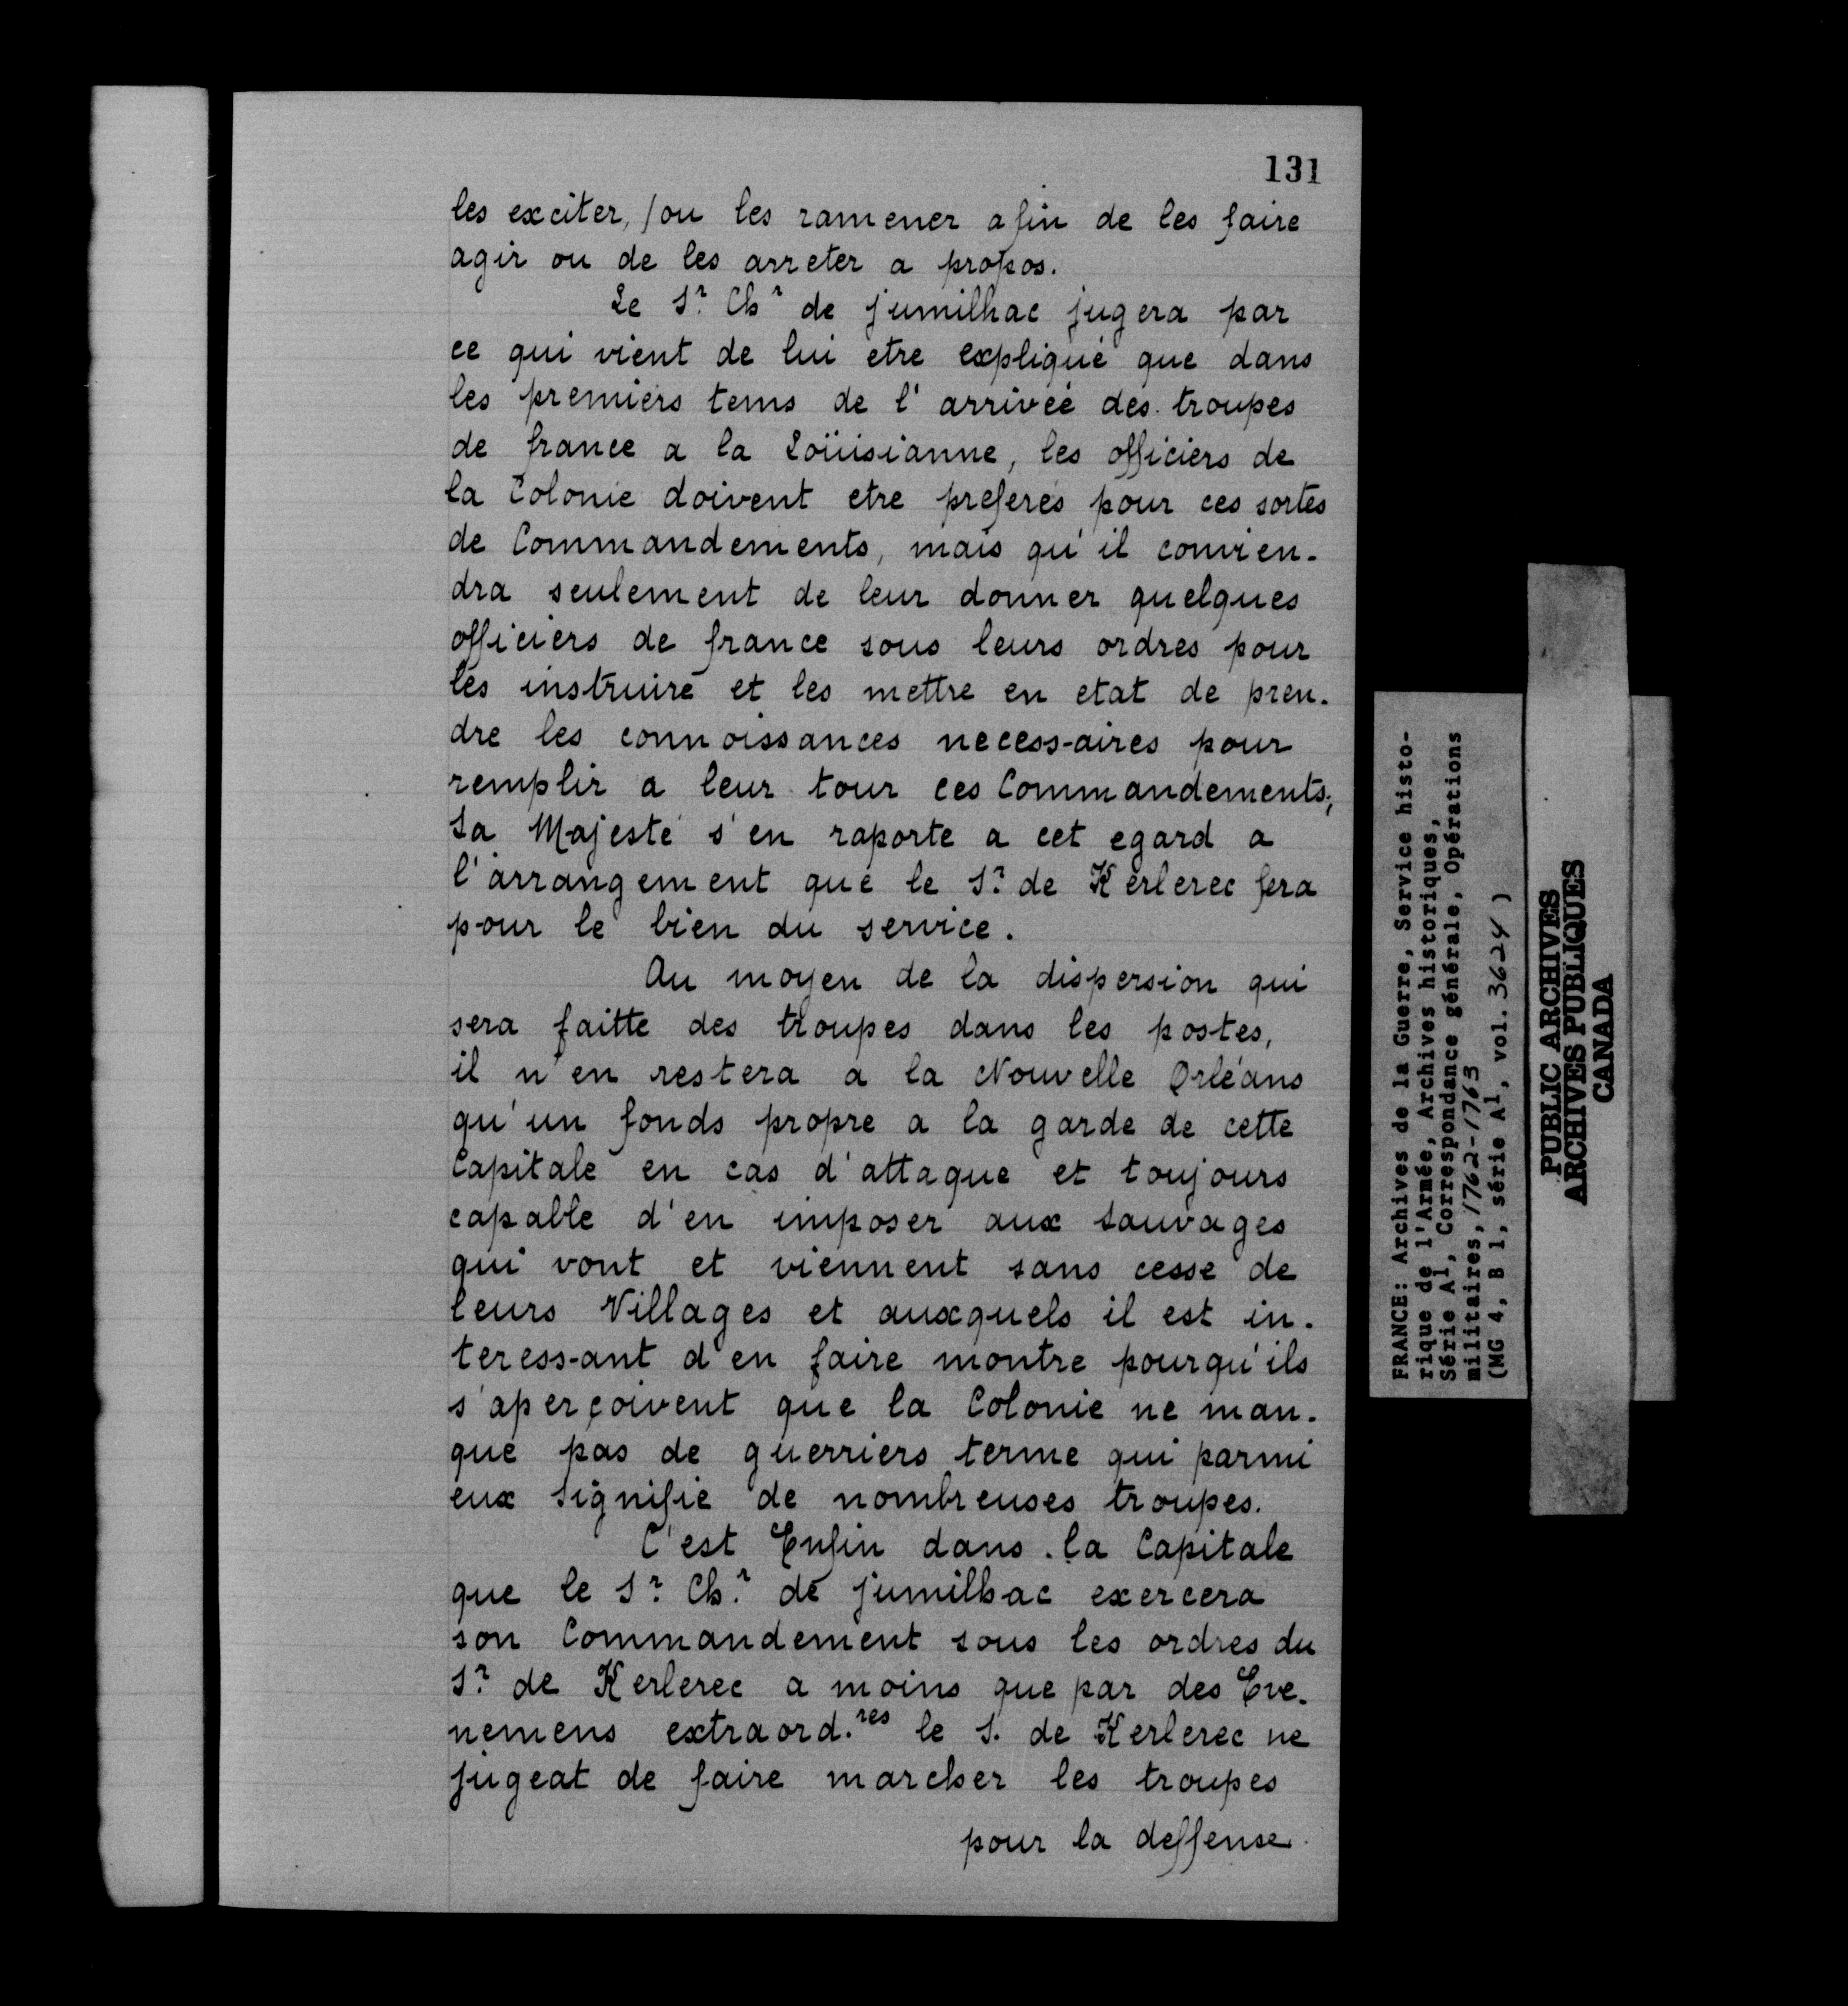 131
les exciter, /ou les ramener afin de les faire
agir ou de les arreter a propos.
Le Sr. Chr de jumilhac jugera par
ce qui vient de lui etre expliqué que dans
les premiers tems de l'arrivée des troupes
de france a la Loüisianne, les officiers de
la Colonie doivent etre preferés pour ces sortes
de Commandements, mais qu'il convien-
dra seulement de leur donner quelques
officiers de france sous leurs ordres pour
les instruire et les mettre en etat de pren-
dre les connoissances necess-aires pour
remplir a leur tour ces Commandements;
Sa Majesté s'en raporte a cet egard a
l'arrangement que le Sr. de Kerlerec fera
pour le bien du service.
Au moyen de la dispersion qui
sera faitte des troupes dans les postes,
il n'en restera a la Nouvelle Orléans
qu'un fonds propre a la garde de cette
Capitale en cas d'attaque et toujours
capable d'en imposer aux Sauvages
qui vont et viennent sans cesse de
leurs Villages et auxquels il est in-
teress-ant d'en faire montre pourqu'ils
s'aperçoivent que la Colonie ne man-
que pas de guerriers terme qui parmi
eux signifie de nombreuses troupes.
C'est Enfin dans la Capitale
que le Sr. Chr. de jumilhac exercera
son Commandement sous les ordres du
Sr. de Kerlerec a moins que par des Eve-
nemens extraord.res le S. de Kerlerec ne
jugeat de faire marcher les troupes
pour la deffense
FRANCE: Archives de la Guerre, Service histo-
rique de l'Armée, Archives historiques,
Série A1, Correspondance générale, Opérations
militaires, 1762-1763
(MG 4, B 1, série A1, vol. 3624)
PUBLIC ARCHIVES
ARCHIVES PUBLIQUES
CANADA